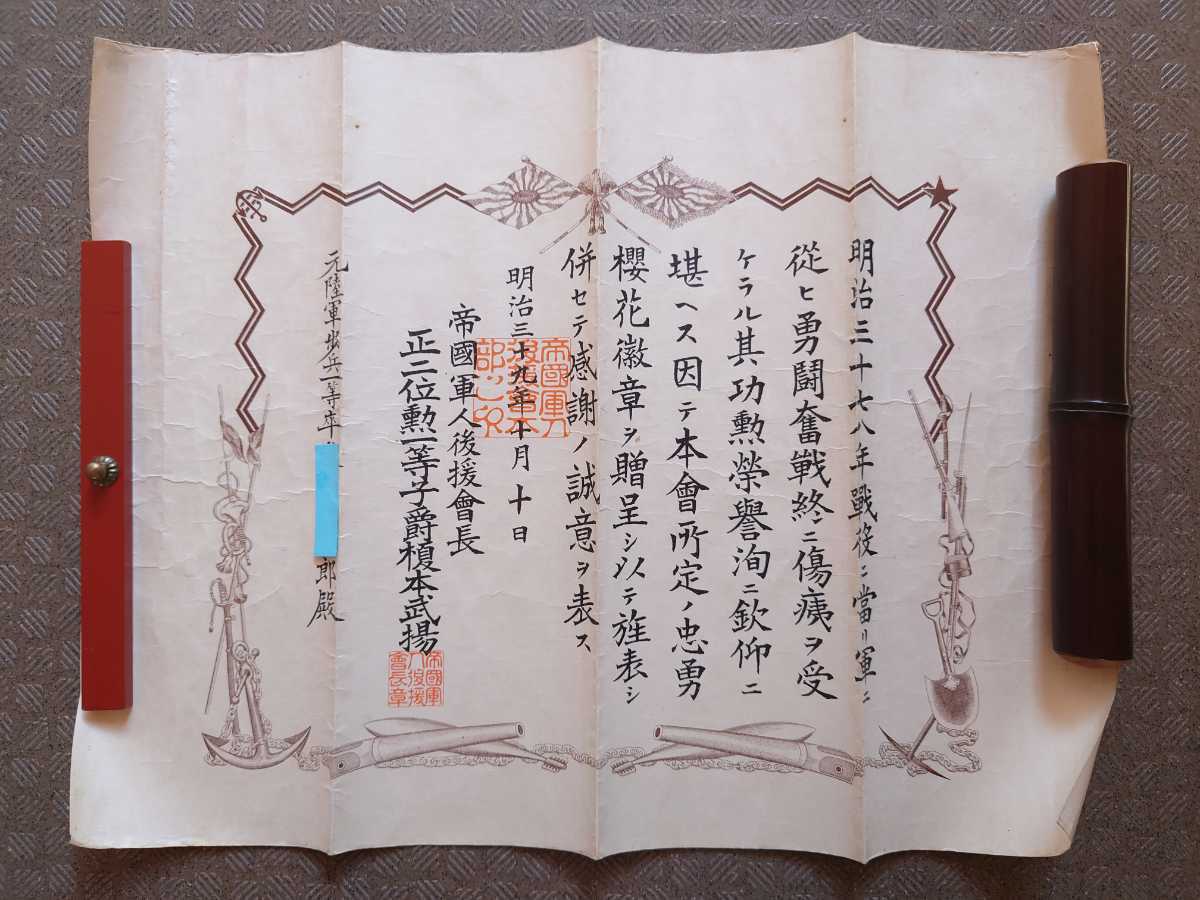 明治三十七八年戰役ニ當リ軍ニ
從ヒ勇鬪奮戰終ニ傷痍ヲ受
ケラル其功勲榮譽洵ニ欽仰ニ
堪ヘス因テ本會所定ノ忠勇
櫻花徽章ヲ贈呈シ以テ旌表シ
併セテ感謝ノ誠意ヲ表ス
明治三十九年十月十日
帝國軍人後援會長
正二位勲一等子爵榎本武揚
帝國軍人後援會長章
元陸軍歩兵一等卒
郎殿